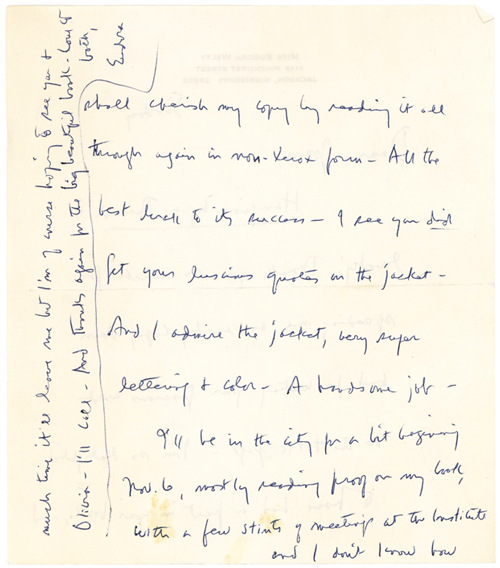 shall cherish my copy by reading it all
through again in non-Xerox form - All the
best luck to its success - I see you did
get your luscious quotes on the jacket -
And I admire the jacket, very super
lettering & color - A handsome job -
I'll be in the city for a bit beginning
Nov. 6, mostly reading proof on my book,
with a few stints of meetings at the Institute
and I don't know how
much time it'll leave me but I'm of course hoping to see you &
Olivia - I'll call - And thanks again for the big beautiful book - Love to
both,
Eudora